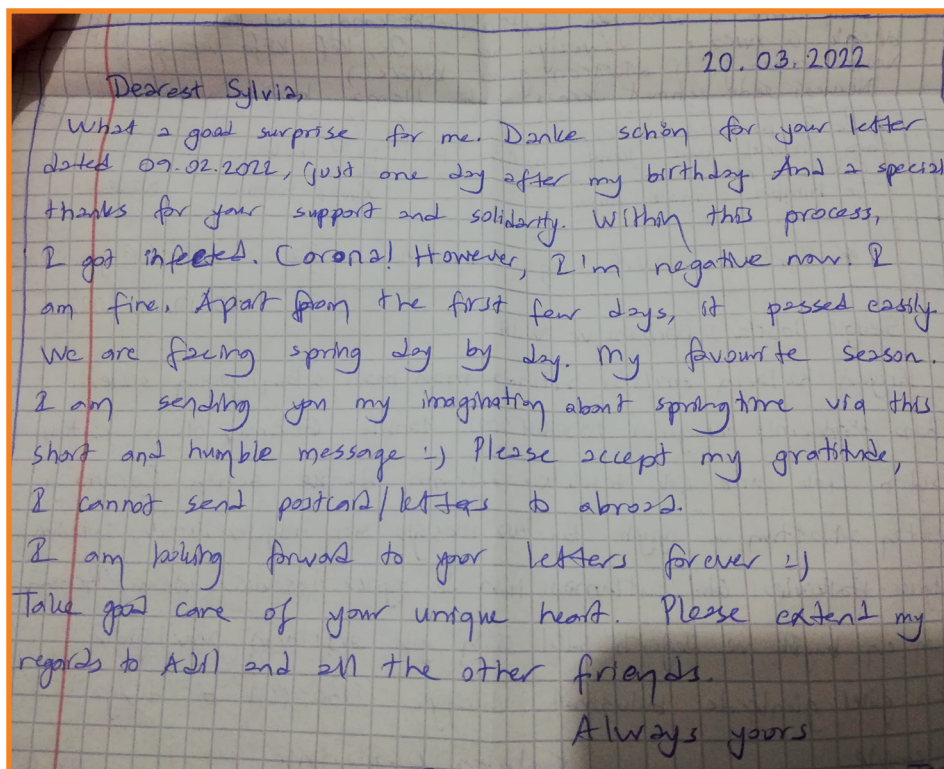 20.03.2022
Dearest Sylvia,
What a good surprise for me. Danke schön for your letter
dated 09.02.2022, just one day after my birthday And a special
thanks for your support and solidarity. Within this process,
I got infected. Corona! However, I'm negative now. I
am fine. Apart from the first few days, it passed easily.
We are facing spring day by day. My favourite season.
I am sending you my imagination about springtime via this
short and humble message :) Please accept my gratitude,
I cannot send postcard/letters to abroad.
I am looking forward to your letters forever :)
Take good care of your unique heart. Please extend my
regards to and all the other friends.
Always yours